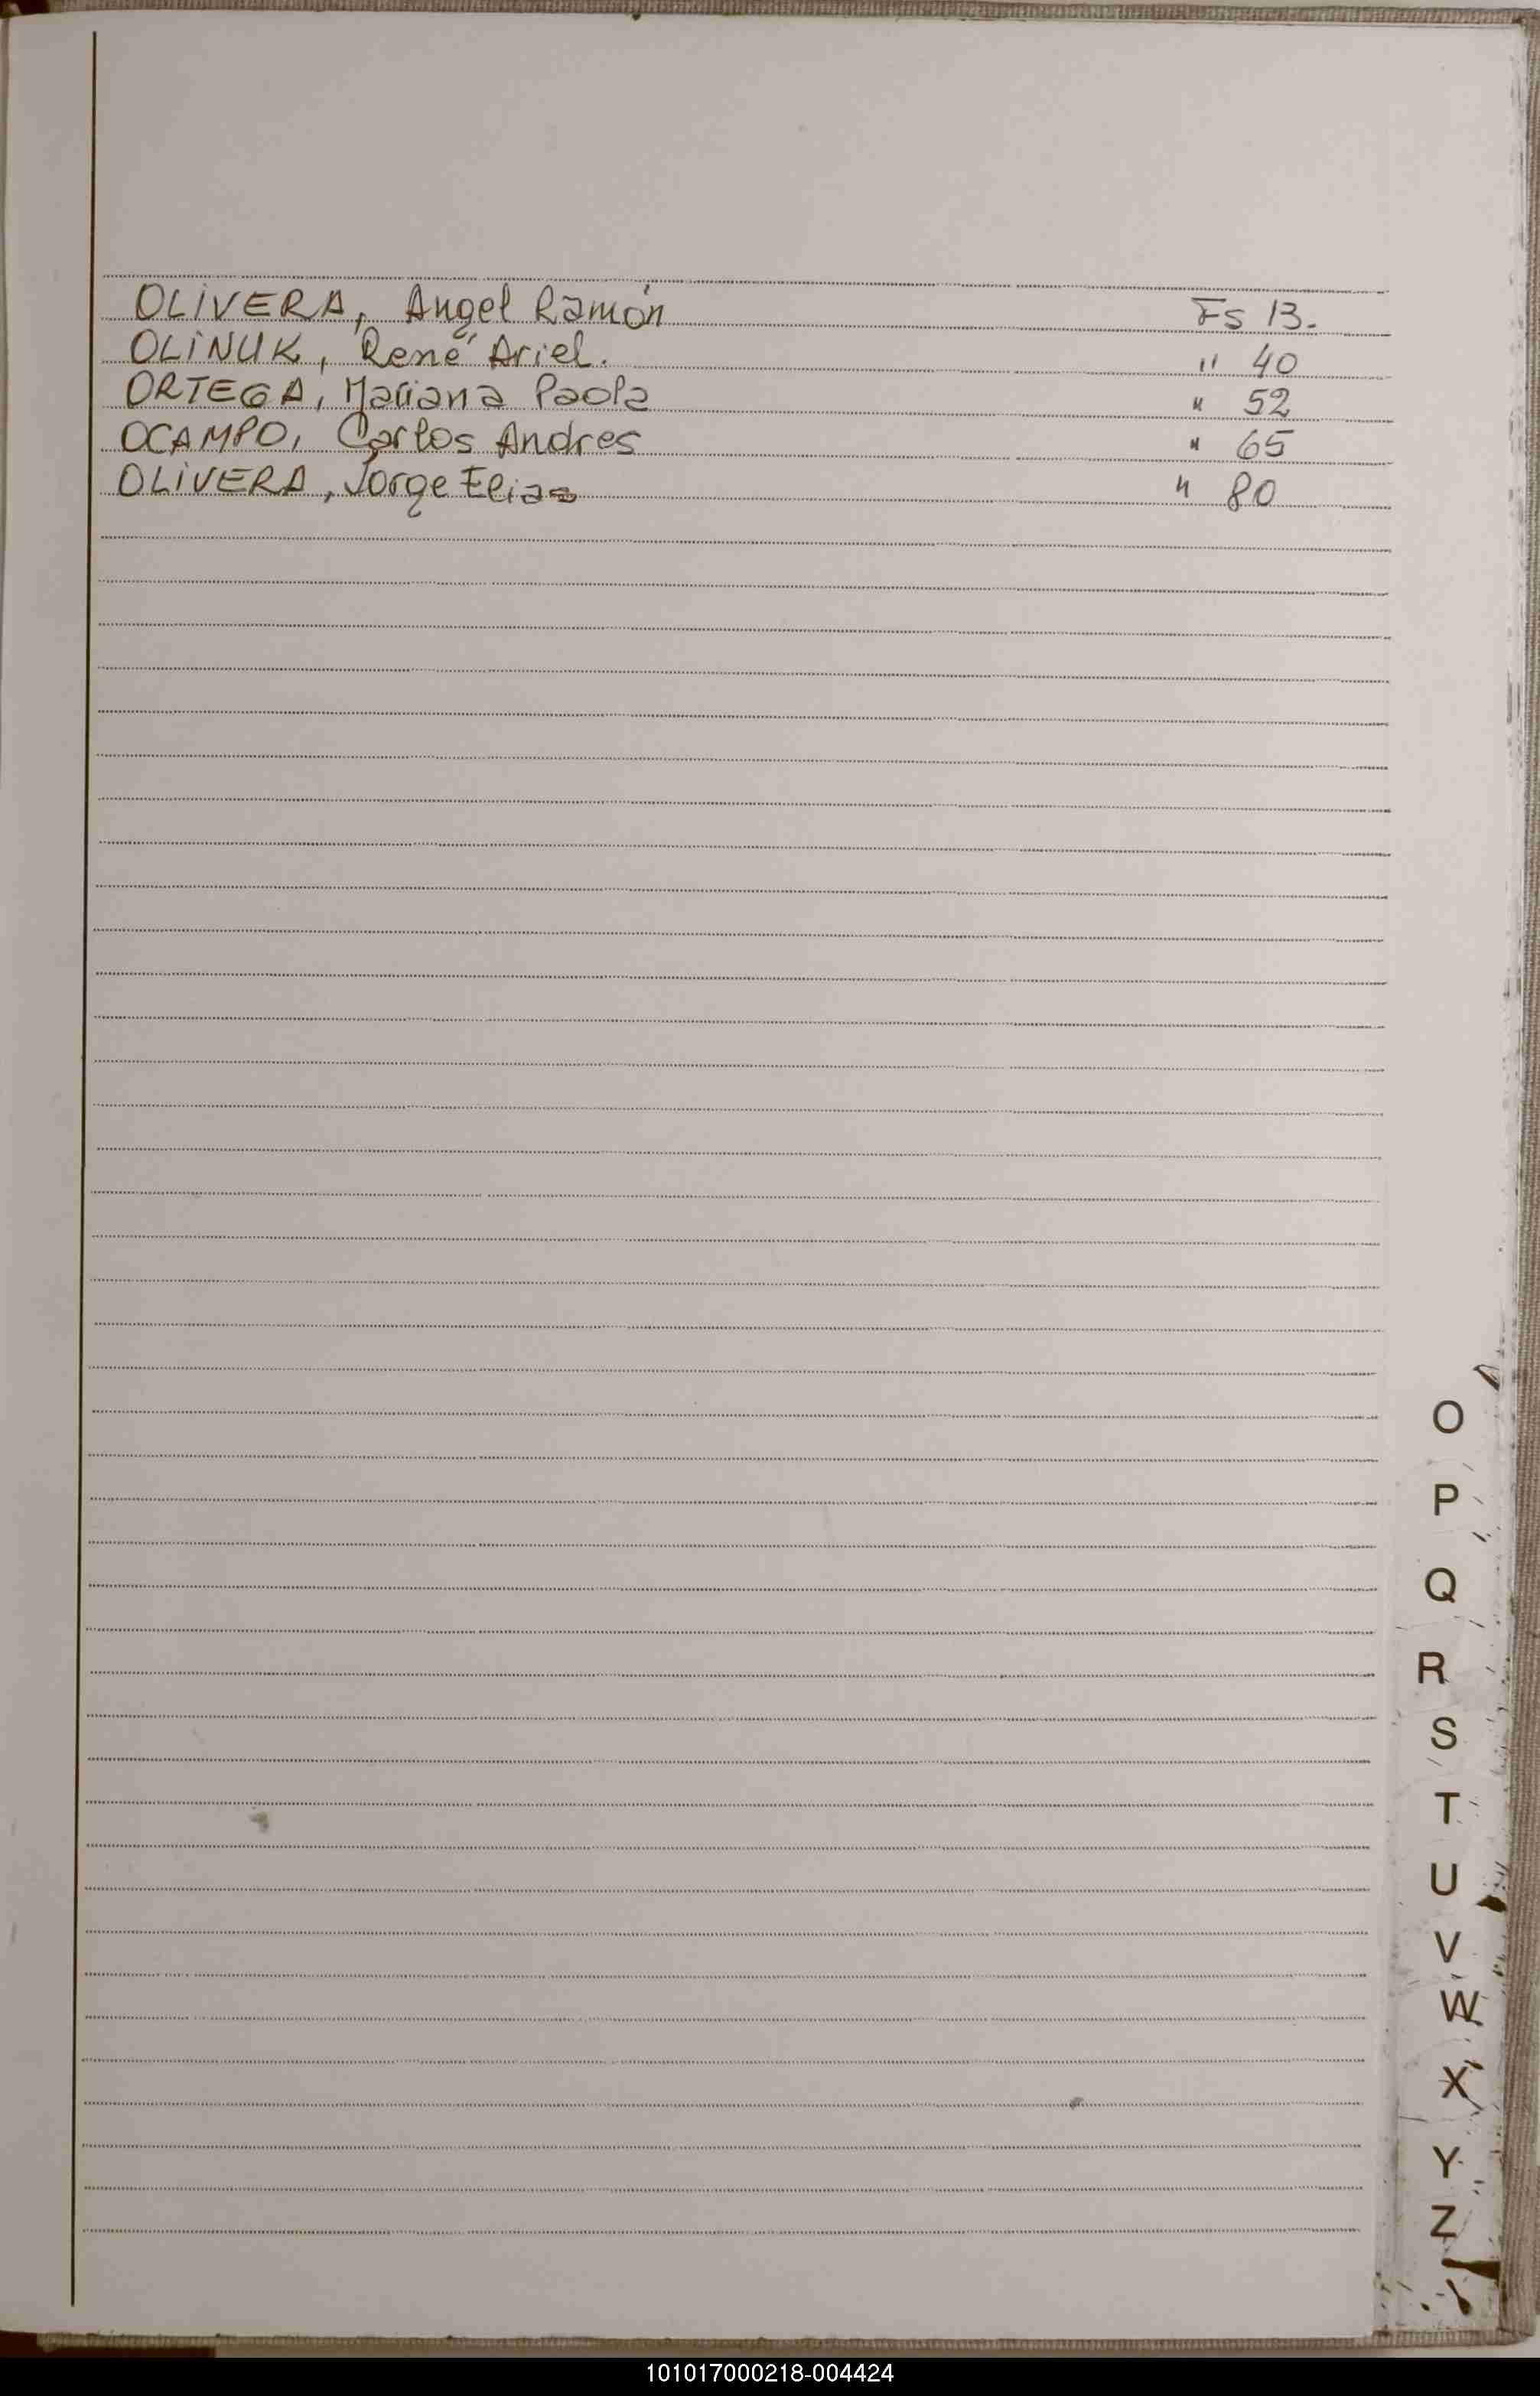 OLIVERA, Angel Ramón Fs 13.
OLINUK, René Ariel. " 40
ORTEGA, Mariana Paola " 52
OCAMPO, Carlos Andres " 65
OLIVERA, Jorge Elias " 80
O
P
Q
R
S
T
U
V
W
X
Y
Z
101017000218-004424